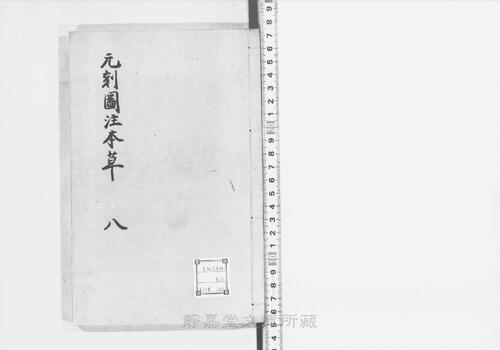 元刻圖注本草
八
靜嘉堂文庫所藏